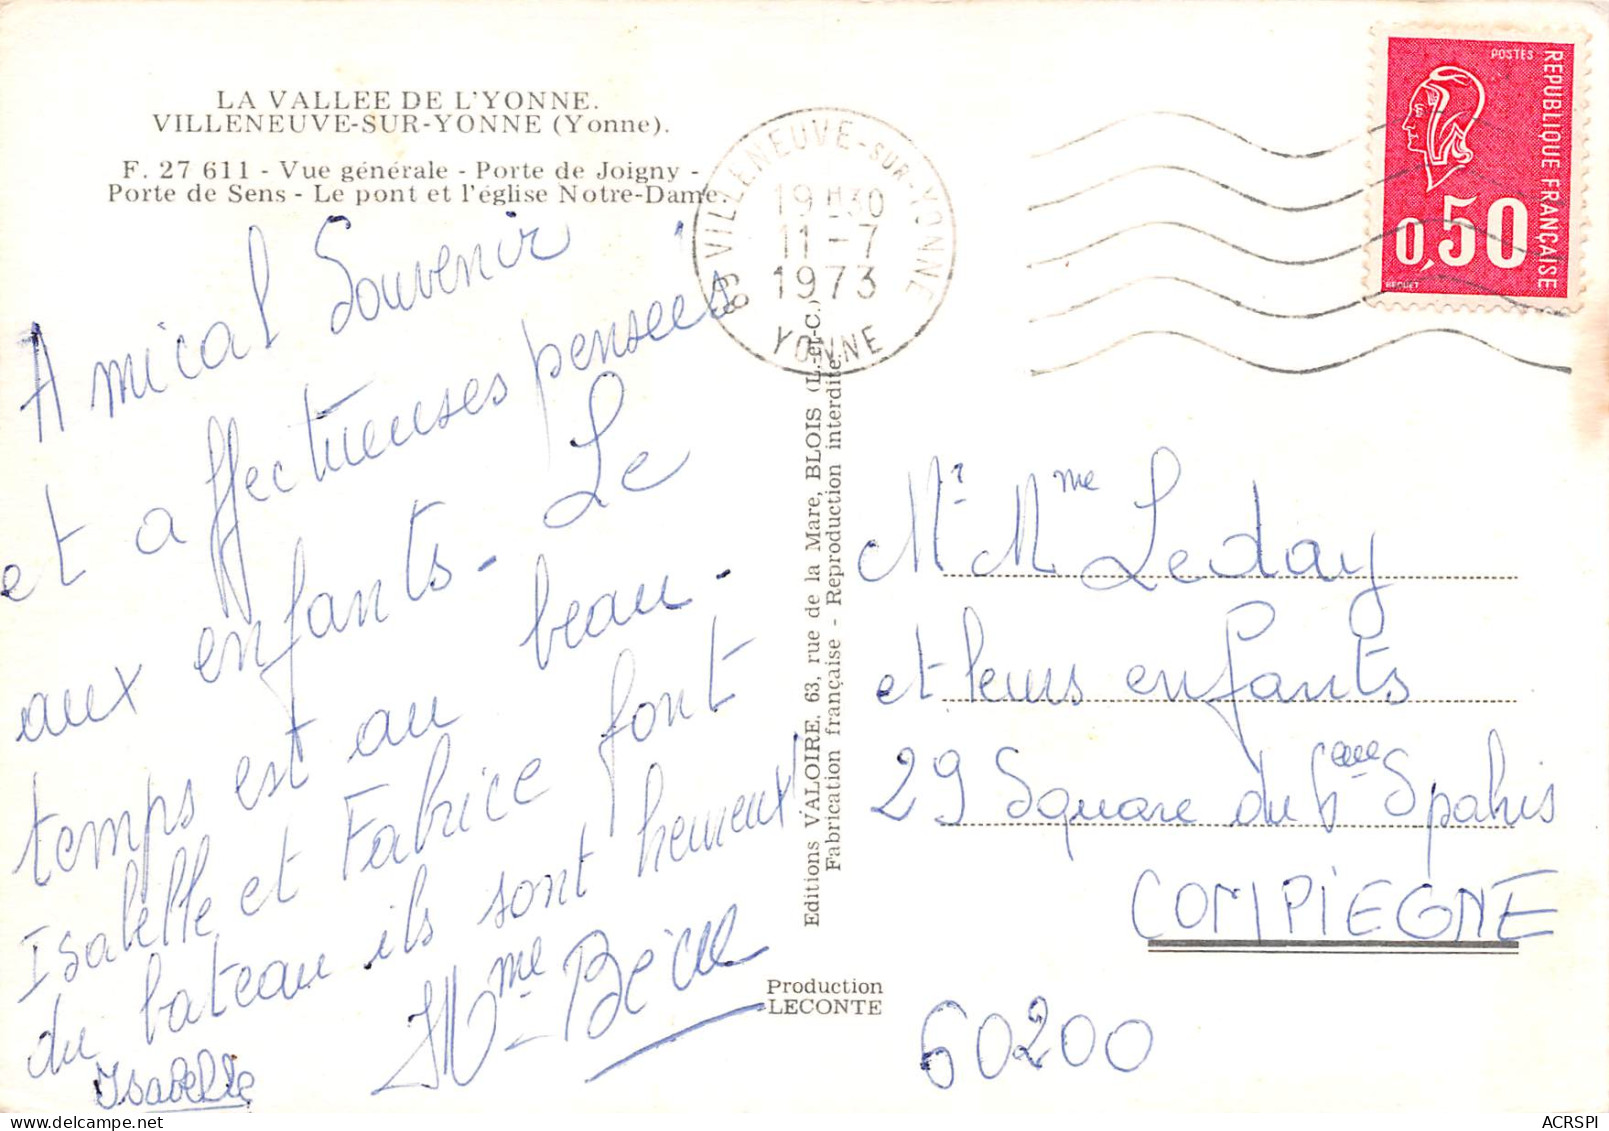 LA VALLEE DE L'YONNE.
VILLENEUVE-SUR-YONNE (Yonne).
F. 27 611 - Vue générale - Porte de Joigny -
Porte de Sens - Le pont et l'église Notre-Dame.
Amical Souvenir
et affectueuses pensées
aux enfants - Le
temps est au beau.
Isabelle et Fabrice font
du bateau ils sont heureux!
Mme
Isabelle
89 VILLENEUVE-SUR-YONNE
19H30
11-7
1973
YONNE
POSTES
REPUBLIQUE FRANÇAISE
0,50
BEQUET
Editions VALOIRE, 63, rue de la Mare, BLOIS (L.-et-C.)
Fabrication française - Reproduction interdite
Production
LECONTE
Mr Mme Leday
et leurs enfants
29 Square du 6eme Spahis
COMPIEGNE
60200
ACRSPI